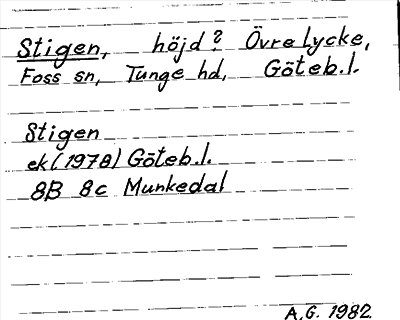 Stigen, höjd? Övre Lycke,
Foss sn, Tunge hd, Göteb.l.
Stigen
ek (1978) Göteb.l.
8B 8c Munkedal
A.G. 1982.